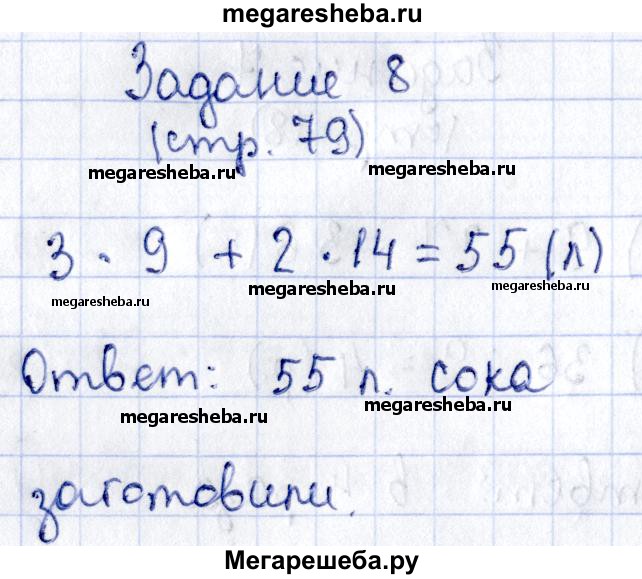 megaresheba.ru
Задание 8
(стр. 79)
megaresheba.ru megaresheba.ru
3 · 9 + 2 · 14 = 55 (л)
megaresheba.ru megaresheba.ru megaresheba.ru
Ответ: 55 л. сока
megaresheba.ru megaresheba.ru
заготовили.
Мегарешеба.ру